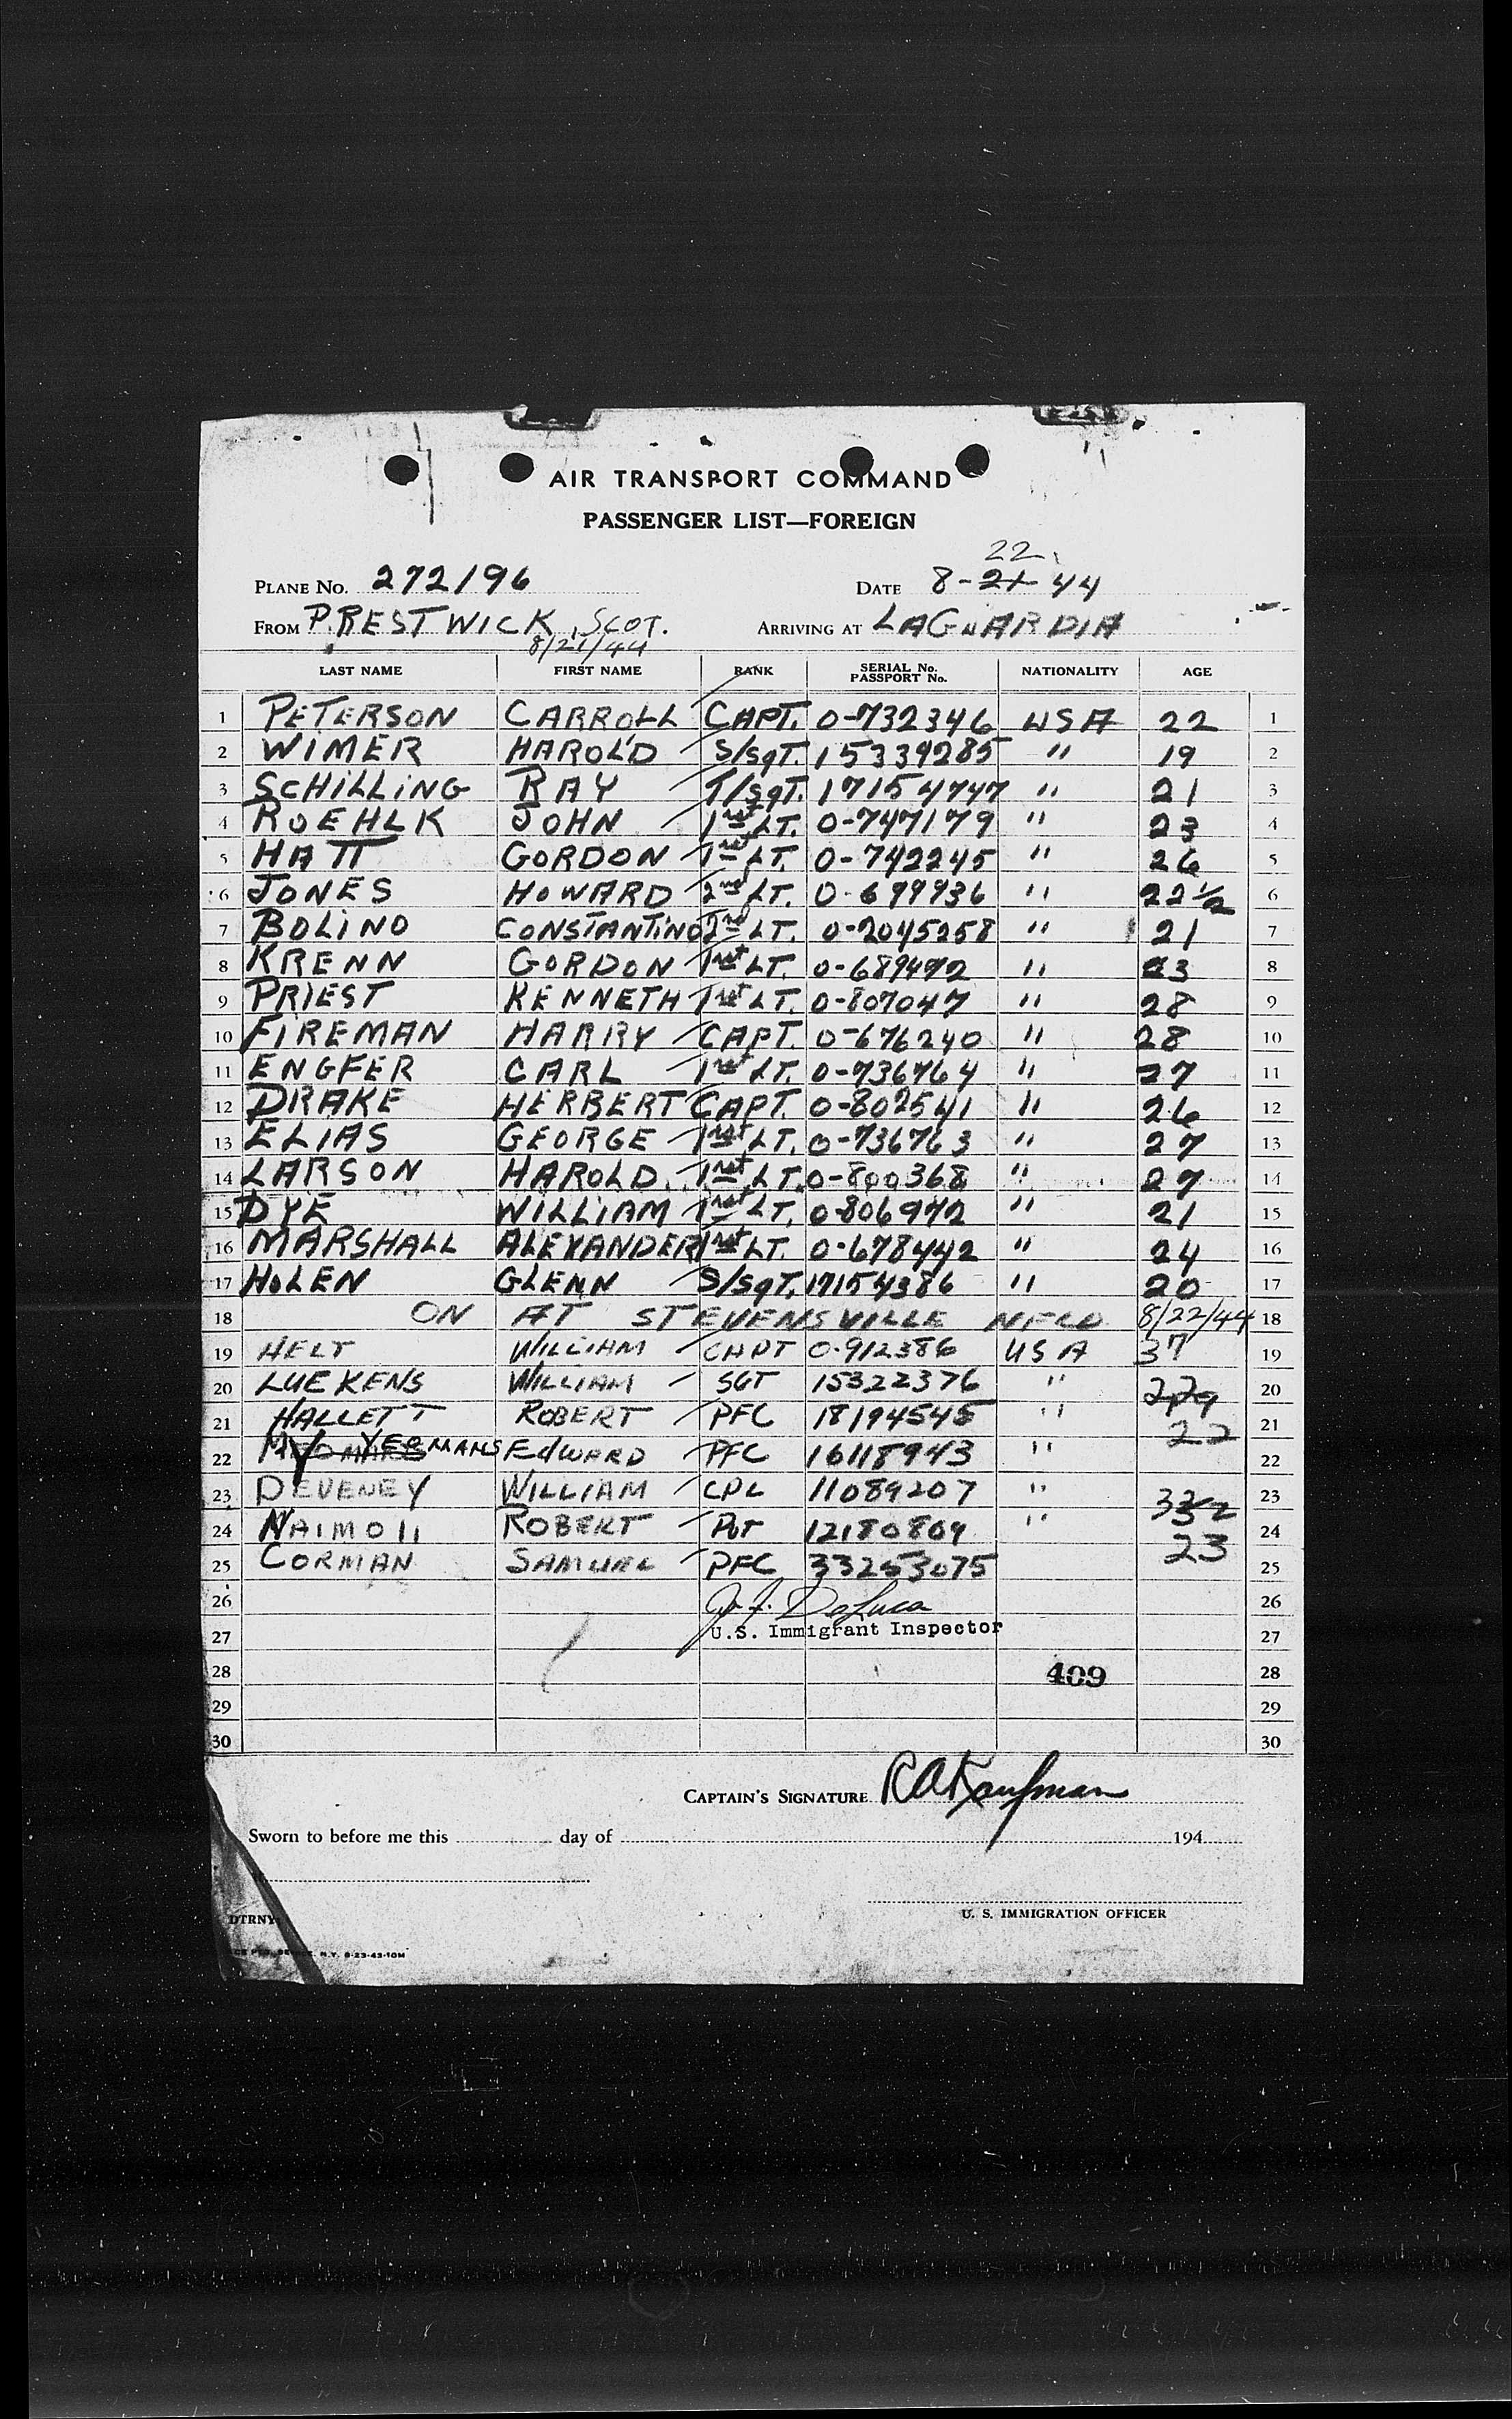 AIR TRANSPORT COMMAND
PASSENGER LIST—FOREIGN
22
PLANE No. 272196 DATE 8-21-44
FROM PRESTWICK, SCOT. ARRIVING AT LAGUARDIA
8/21/44
LAST NAME FIRST NAME RANK SERIAL No. PASSPORT No. NATIONALITY AGE
1 PETERSON CARROLL CAPT. 0-732346 USA 22 1
2 WIMER HAROLD S/SGT. 15339285 " 19 2
3 SCHILLING RAY T/SGT. 17154747 " 21 3
4 ROEHLK JOHN 1st LT. 0-747179 " 23 4
5 HATT GORDON 1st LT. 0-742245 " 26 5
6 JONES HOWARD 2nd LT. 0-699936 " 22½ 6
7 BOLINO CONSTANTINO 2nd LT. 0-2045258 " 21 7
8 KRENN GORDON 1st LT. 0-689492 " 23 8
9 PRIEST KENNETH 1st LT. 0-807047 " 28 9
10 FIREMAN HARRY CAPT. 0-676240 " 28 10
11 ENGFER CARL 1st LT. 0-736764 " 27 11
12 DRAKE HERBERT CAPT. 0-802541 " 26 12
13 ELIAS GEORGE 1st LT. 0-736763 " 27 13
14 LARSON HAROLD 1st LT. 0-800368 " 27 14
15 DYE WILLIAM 1st LT. 0-806972 " 21 15
16 MARSHALL ALEXANDER 1st LT. 0-678442 " 24 16
17 HOLEN GLENN S/SGT. 17154386 " 20 17
18 ON AT STEVENSVILLE NFLD 8/22/44 18
19 HELT WILLIAM CAPT 0-912386 USA 37 19
20 LUEKENS WILLIAM SGT 15322376 " 20
21 HALLETT ROBERT PFC 18194545 " 22 21
22 YEOMANS EDWARD PFC 16118943 " 22
23 DEVENEY WILLIAM CPL 11089207 " 23
24 NAIMOli ROBERT PVT 12180869 " 24
25 CORMAN SAMUEL PFC 33253075 23 25
26 J. J. DeLuca 26
27 U.S. Immigrant Inspector 27
28 409 28
29 29
30 30
CAPTAIN'S SIGNATURE R A Kaufman
Sworn to before me this day of 194
U. S. IMMIGRATION OFFICER
DTRNY
N.Y. 8-23-43-10M